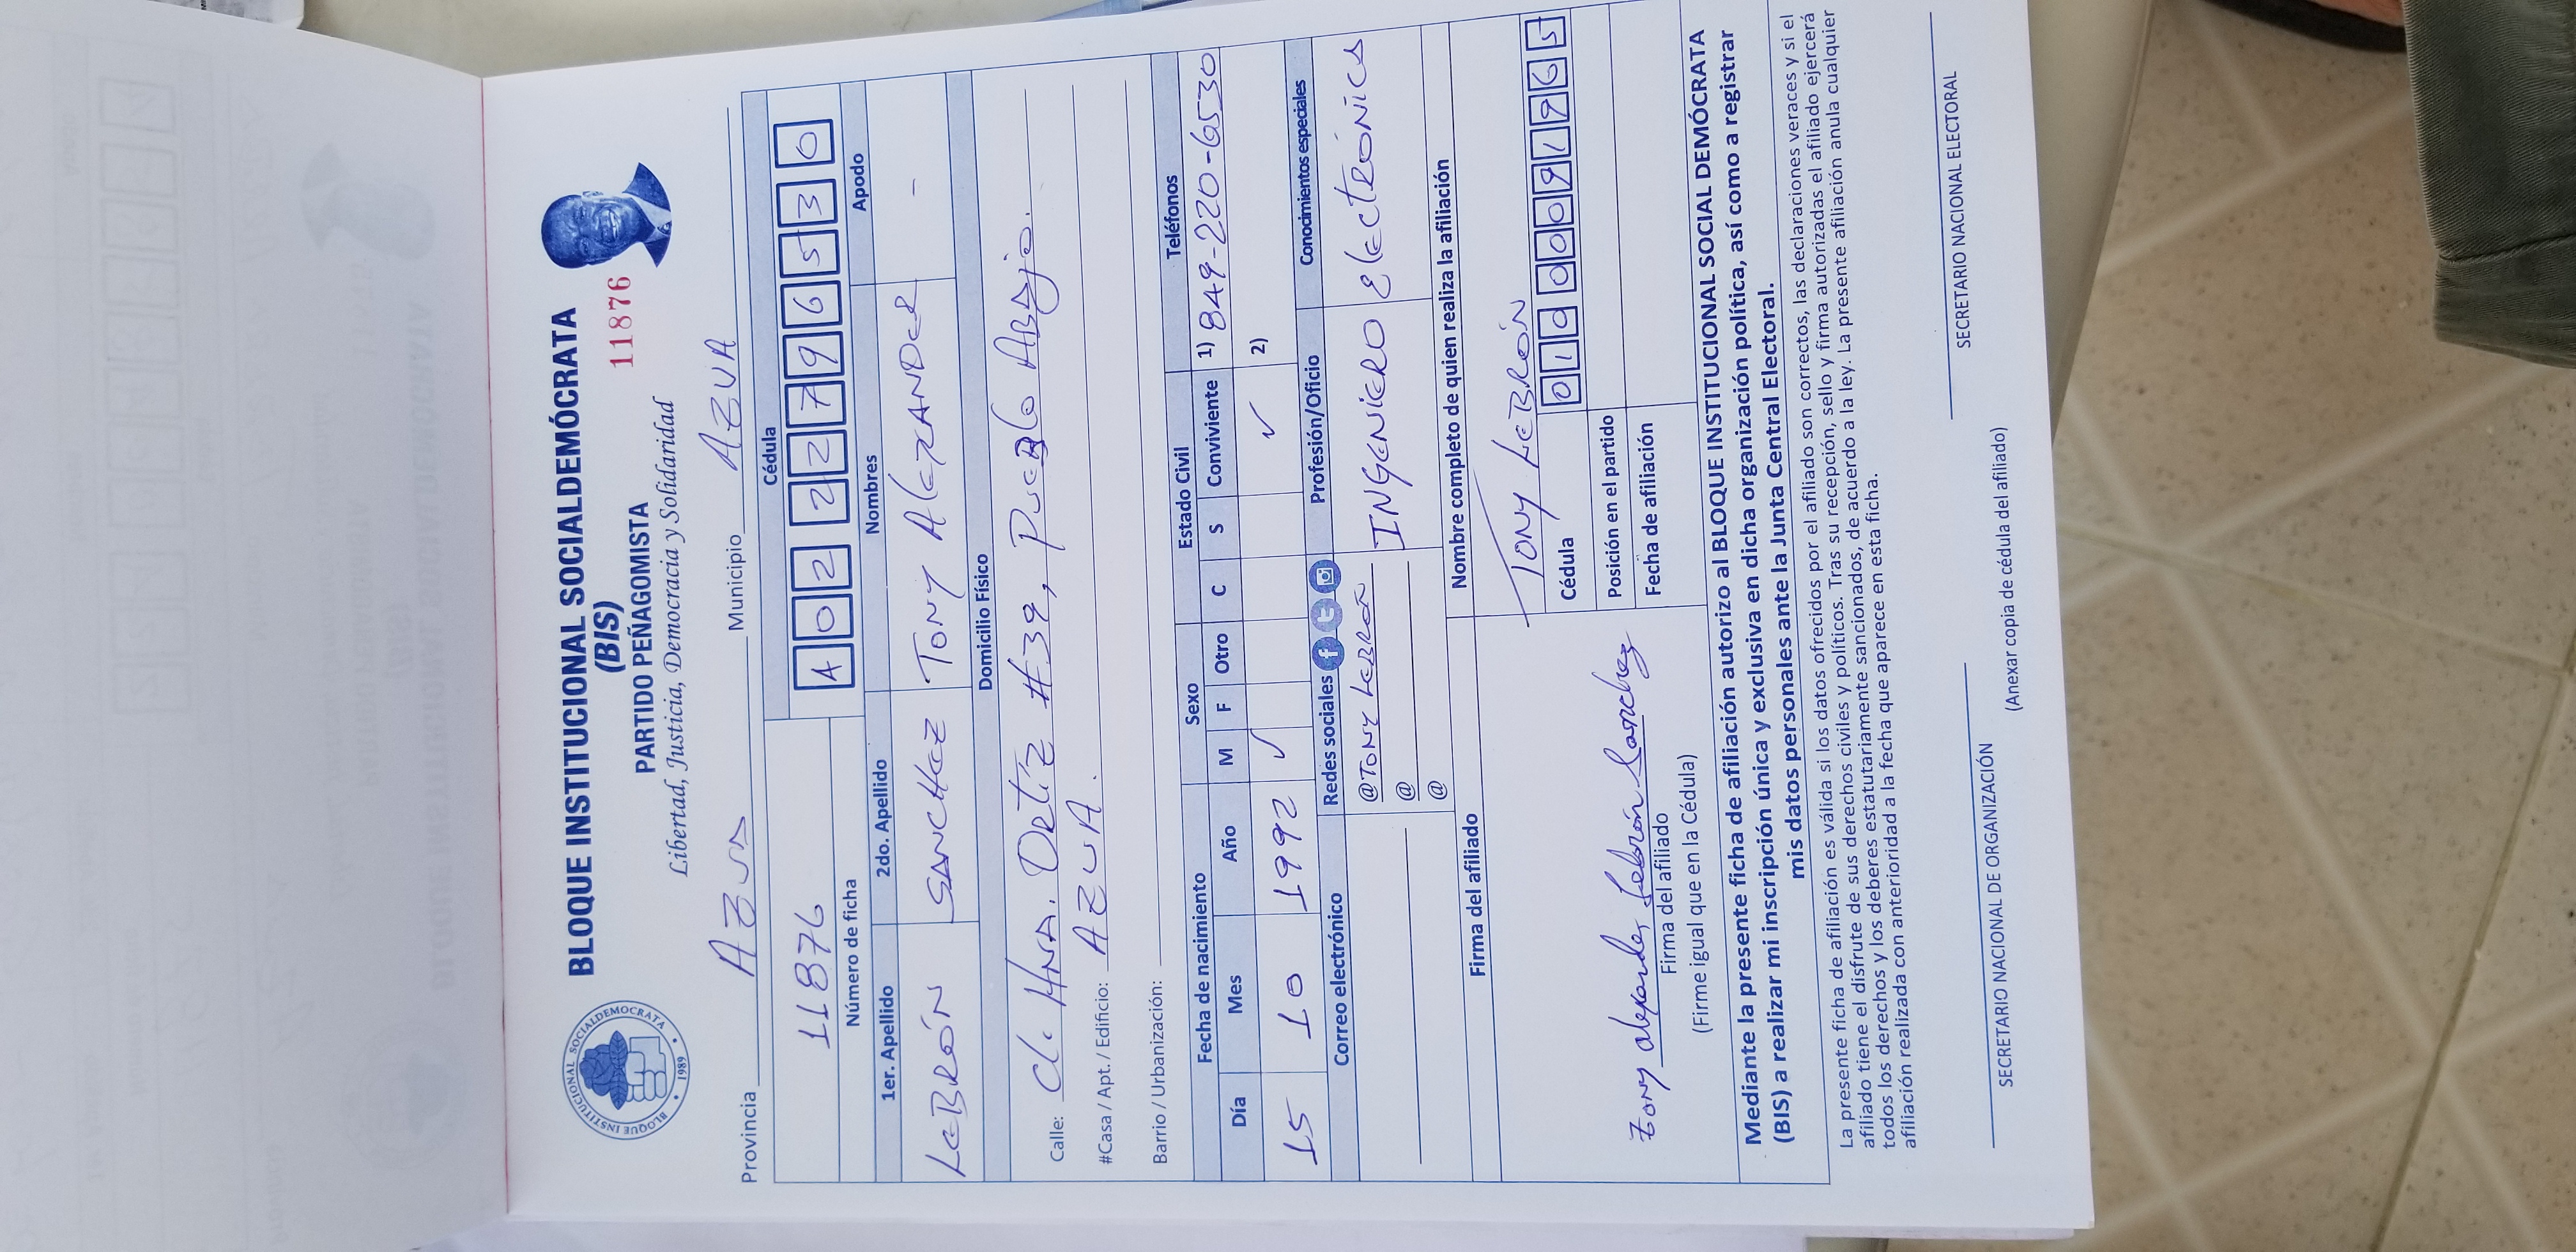 BLOQUE INSTITUCIONAL SOCIALDEMÓCRATA
(BIS)
PARTIDO PEÑAGOMISTA 11876
Libertad, Justicia, Democracia y Solidaridad
BLOQUE INSTITUCIONAL SOCIALDEMOCRATA
1989
Provincia AZUA Municipio AZUA
Cédula
11876 A 0 2 2 2 7 9 6 5 3 0
Número de ficha
1er. Apellido 2do. Apellido Nombres Apodo
LeBRÓN SANCHEZ TONY AleXANDER -
Domicilio Físico
Calle: C/. HNA. Ortíz #39, Pueblo Abajo.
#Casa / Apt. / Edificio: AZUA.
Barrio / Urbanización:
Fecha de nacimiento Sexo Estado Civil Teléfonos
Día Mes Año M F Otro C S Conviviente 1) 849-220-6530
15 10 1992 ✓ ✓ 2)
Correo electrónico Redes sociales Profesión/Oficio Conocimientos especiales
@TONY LeBRÓN INGENIERO electrónica
@
@
Firma del afiliado Nombre completo de quien realiza la afiliación
TONY LeBRÓN
Cédula 0 1 0 0 0 9 1 9 6 5
Posición en el partido
Fecha de afiliación
Tony Alexander Lebrón Sanchez
Firma del afiliado
(Firme igual que en la Cédula)
Mediante la presente ficha de afiliación autorizo al BLOQUE INSTITUCIONAL SOCIAL DEMÓCRATA
(BIS) a realizar mi inscripción única y exclusiva en dicha organización política, así como a registrar
mis datos personales ante la Junta Central Electoral.
La presente ficha de afiliación es válida si los datos ofrecidos por el afiliado son correctos, las declaraciones veraces y si el
afiliado tiene el disfrute de sus derechos civiles y políticos. Tras su recepción, sello y firma autorizadas el afiliado ejercerá
todos los derechos y los deberes estatutariamente sancionados, de acuerdo a la ley. La presente afiliación anula cualquier
afiliación realizada con anterioridad a la fecha que aparece en esta ficha.
SECRETARIO NACIONAL DE ORGANIZACIÓN SECRETARIO NACIONAL ELECTORAL
(Anexar copia de cédula del afiliado)